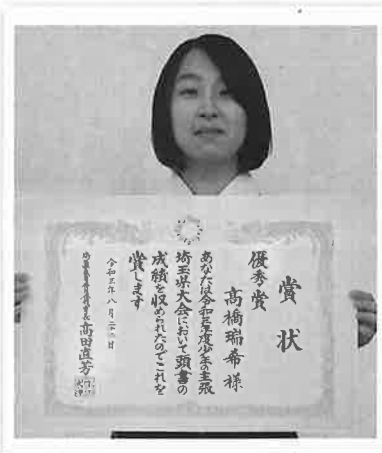 賞状
優秀賞
高橋瑞希様
あなたは令和三年度少年の主張
埼玉県大会において頭書の
成績を収められたのでこれを
賞します
令和三年八月二十一日
高田直芳